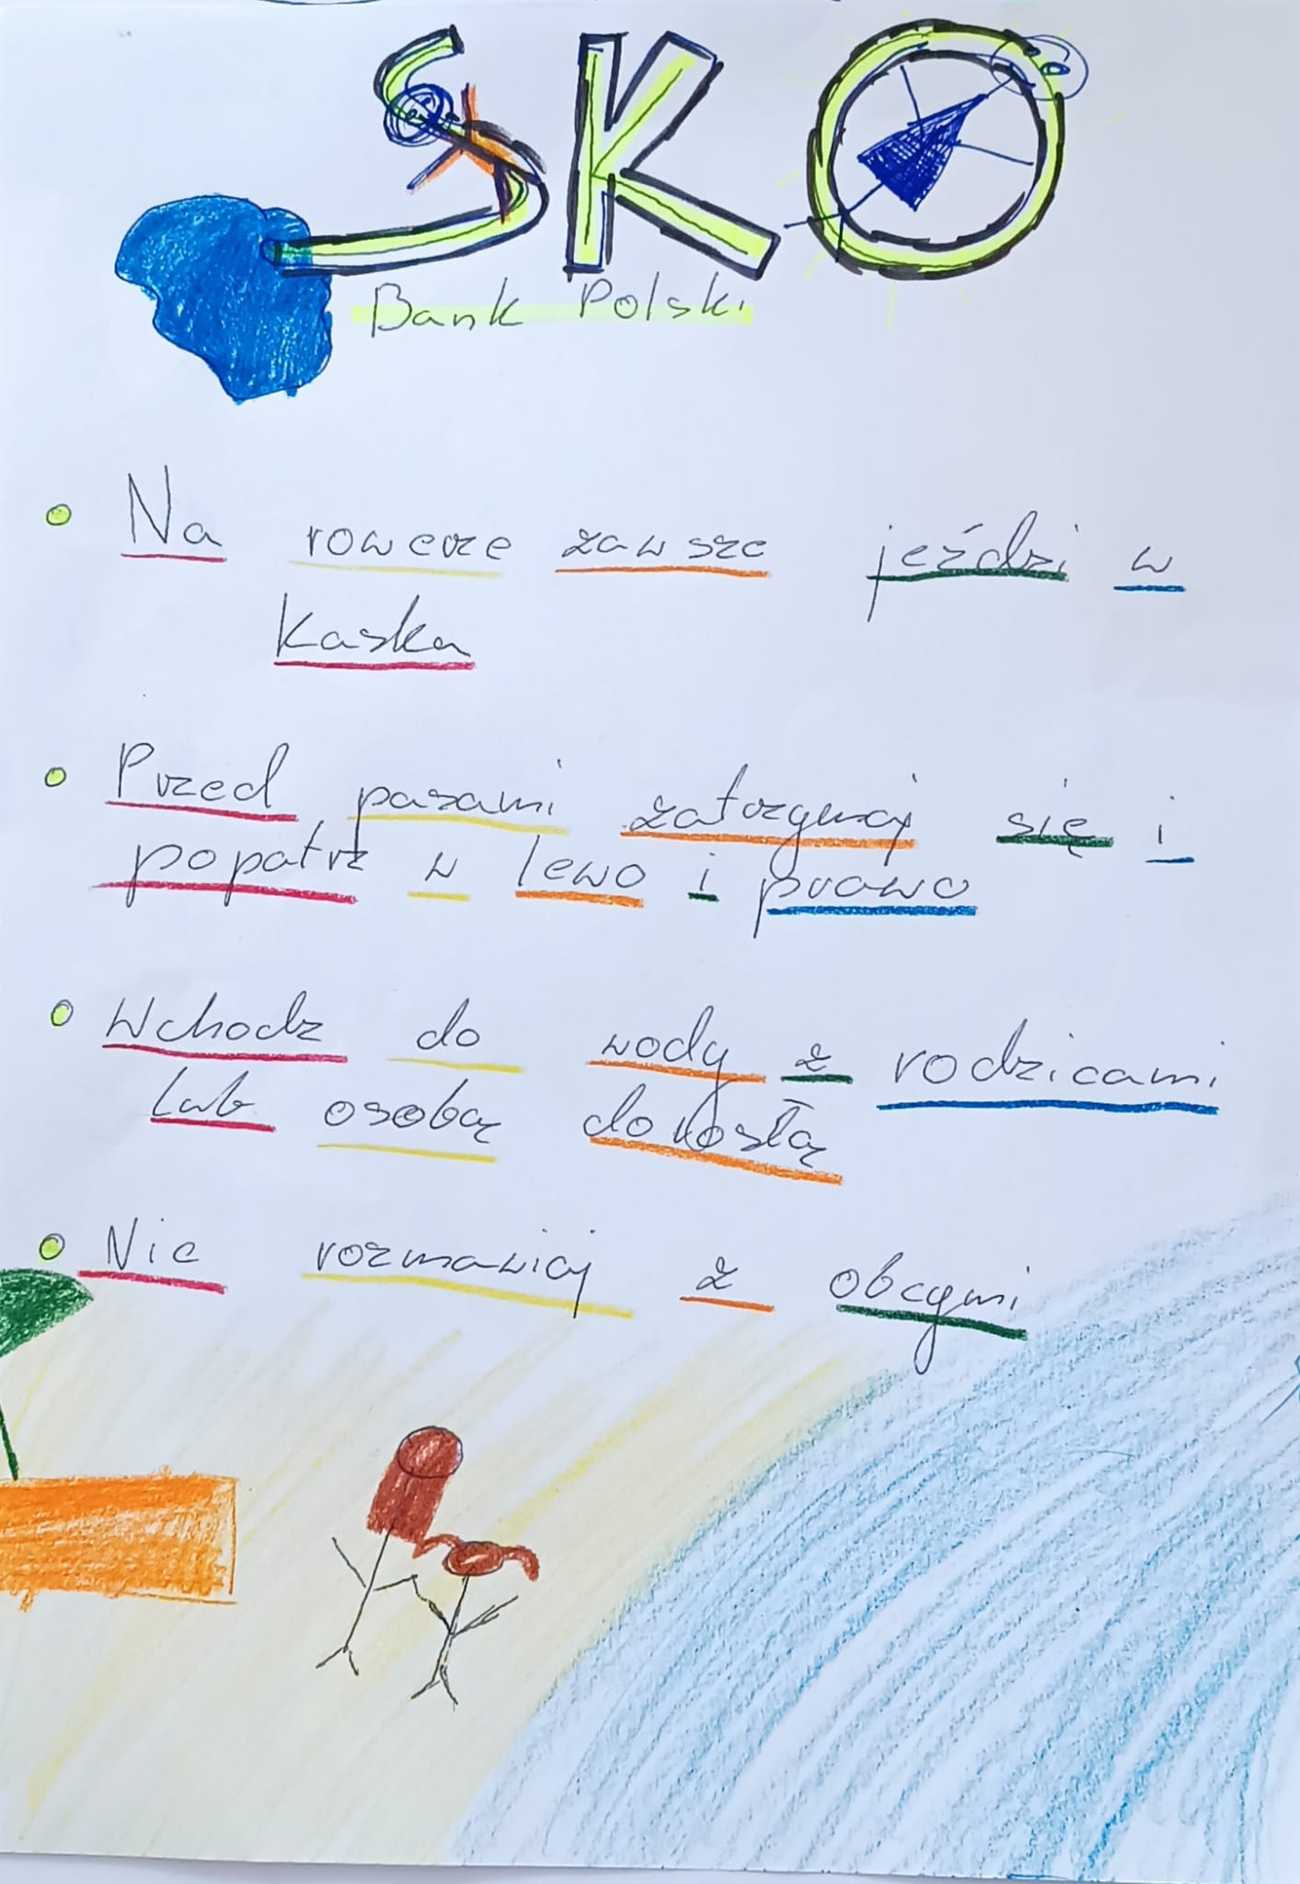 SKO
Bank Polski
Na rowerze zawsze jeździ w
kasku
Przed pasami zatrzymaj się i
popatrz w lewo i prawo
Wchodz do wody z rodzicami
lub osobą dorosłą
Nie rozmawiaj z obcymi